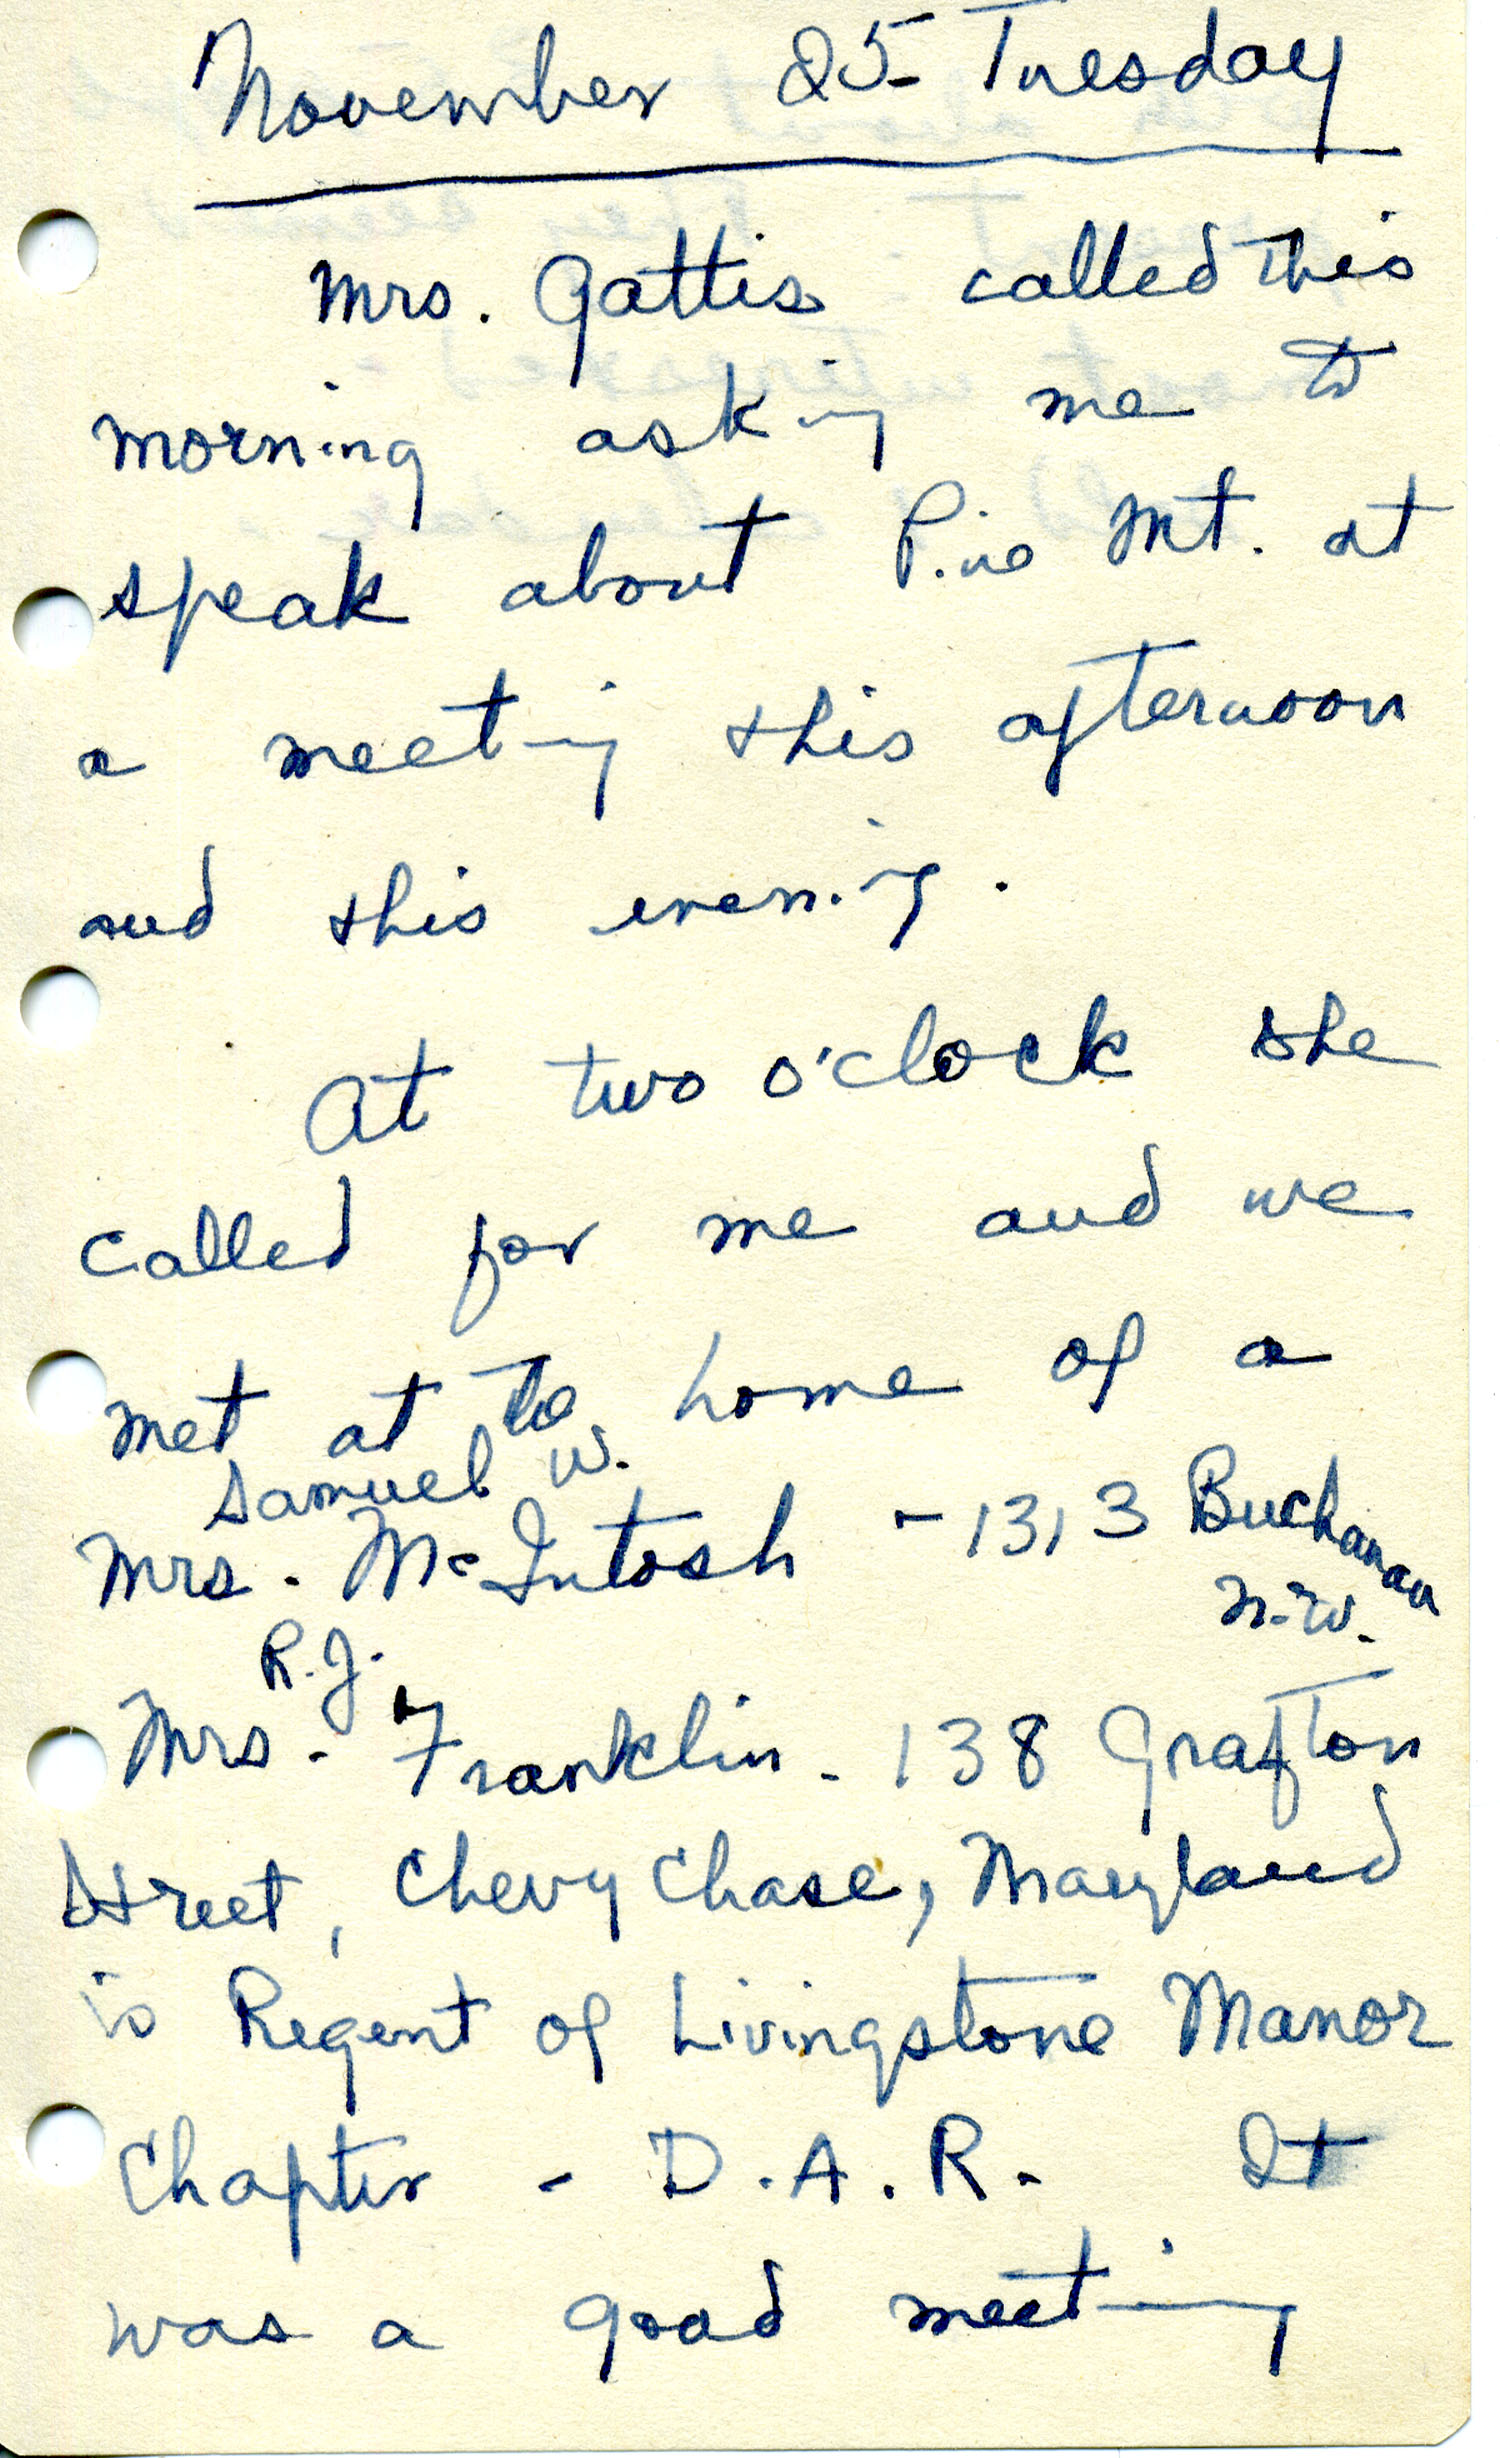 November 25 - Tuesday
Mrs. Gattis called this
morning asking me to
speak about Pine Mt. at
a meeting this afternoon
and this evening.
At two o'clock she
called for me and we
met at the home of a
Samuel W.
Mrs. McIntosh - 1313 Buchanan
N.W.
R.J.
Mrs. Franklin - 138 Grafton
Street, Chevy Chase, Maryland
is Regent of Livingstone Manor
Chapter - D.A.R. It
was a good meeting